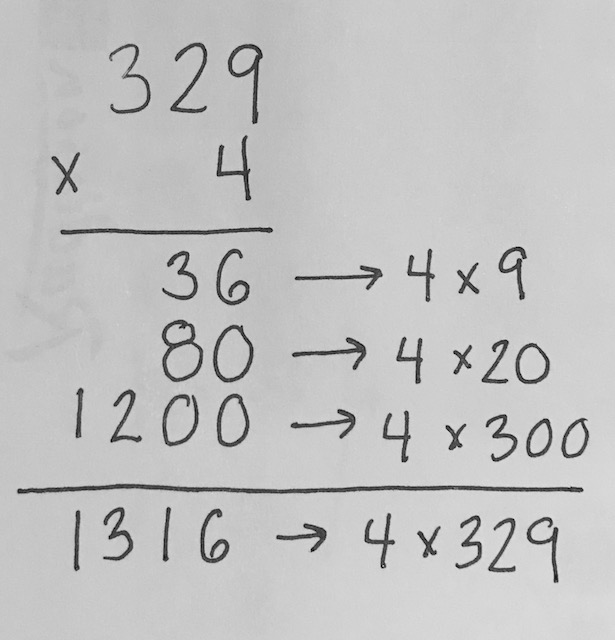 329
x 4
36 → 4 x 9
80 → 4 x 20
1200 → 4 x 300
1316 → 4 x 329